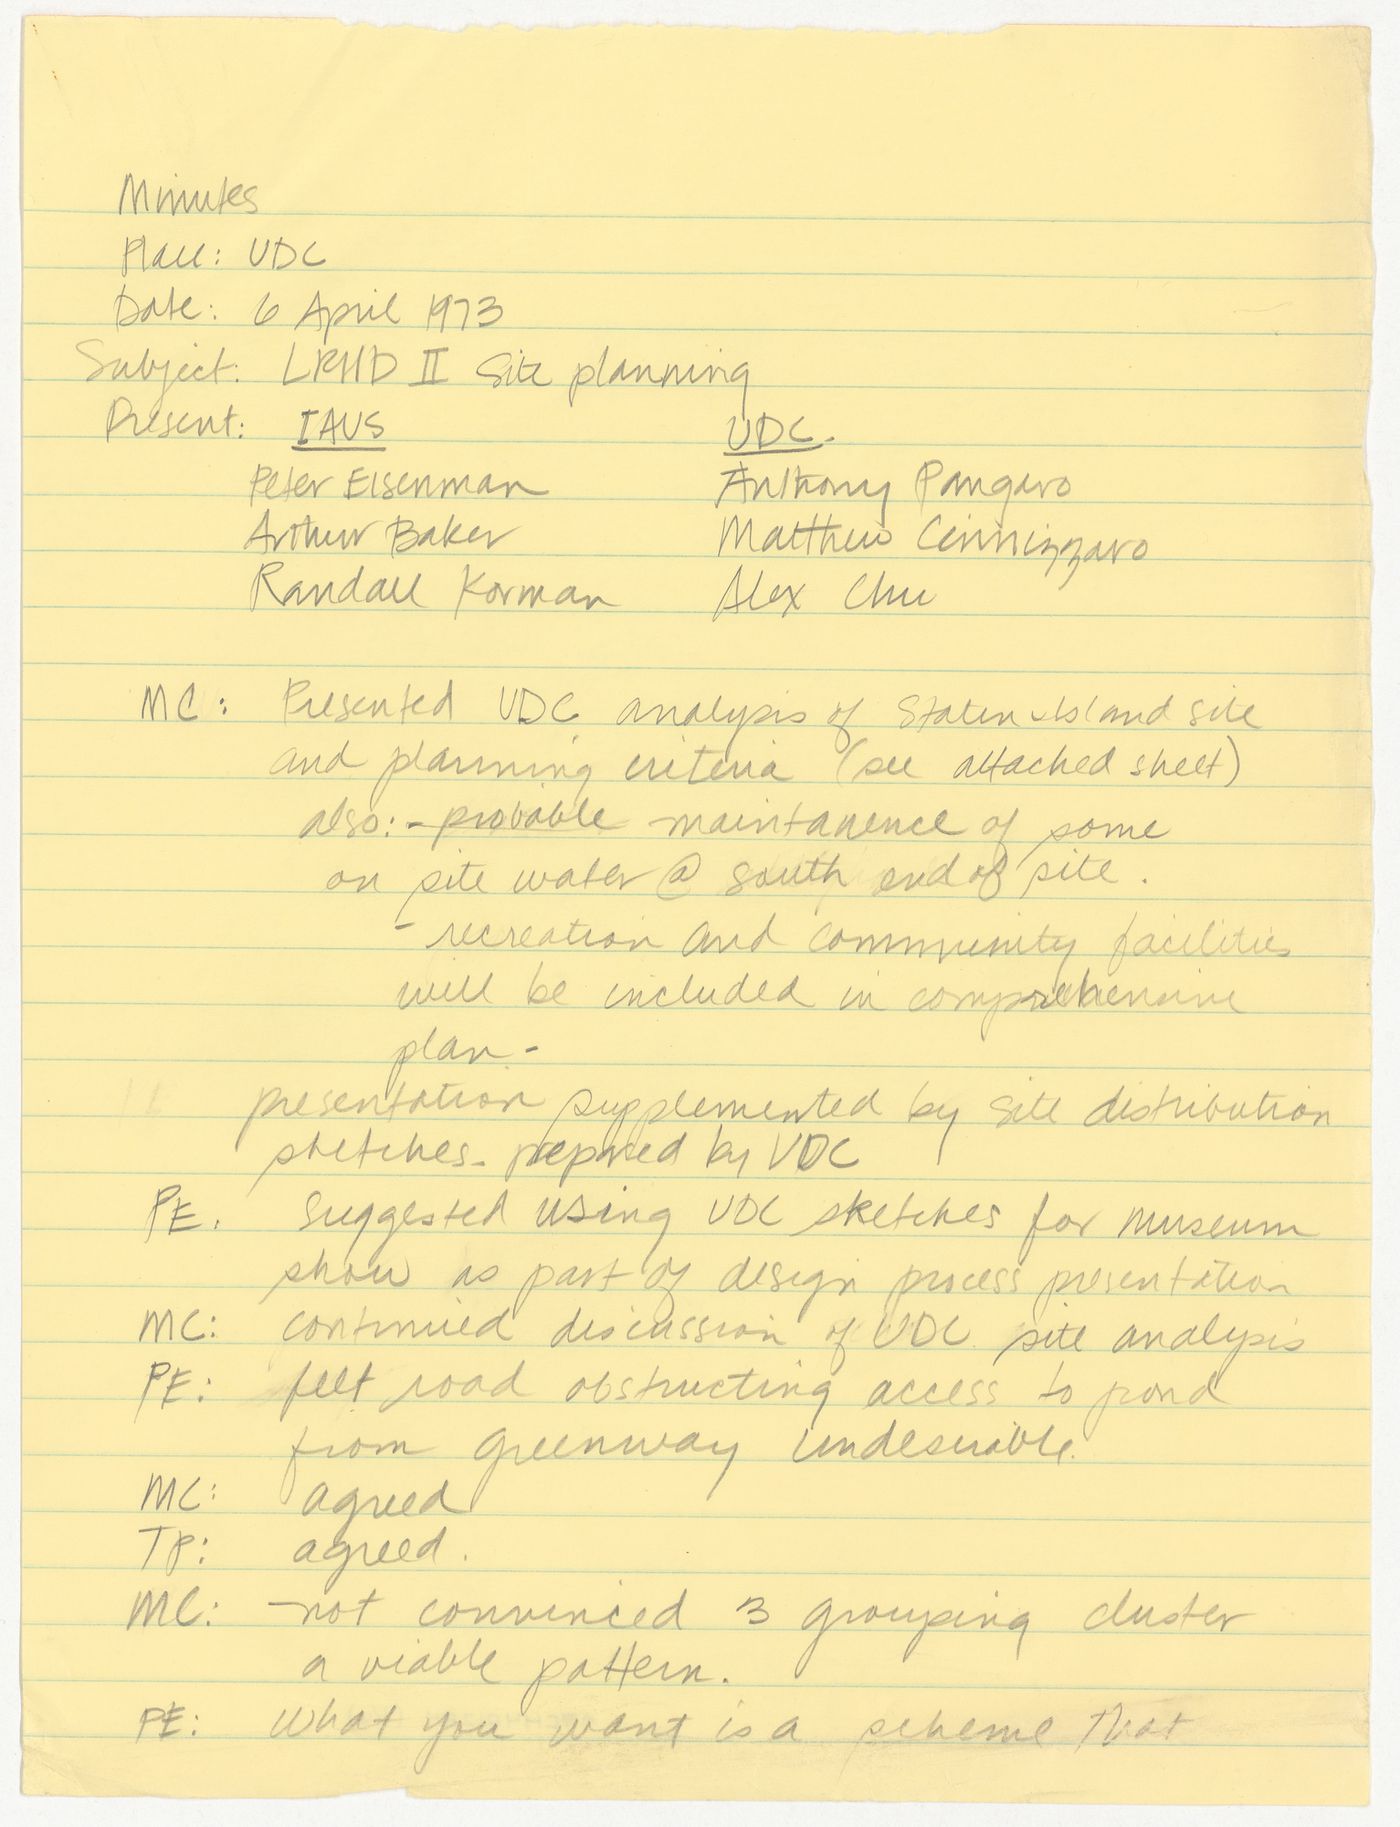 Minutes
Place: UDC
Date: 6 April 1973
Subject: LRHD II Site planning
Present: IAUS UDC.
Peter Eisenman Anthony Pangaro
Arthur Baker Matthew Cinnizzaro
Randall Korman Alex Chu
MC: Presented UDC analysis of Staten Island site
and planning criteria (see attached sheet)
also: - probable maintanence of some
on site water @ south end of site.
- recreation and community facilities
will be included in comprehensive
plan -
presentation supplemented by site distribution
sketches prepared by UDC
PE. Suggested using UDC sketches for museum
show as part of design process presentation
MC: continued discussion of UDC site analysis
PE: felt road obstructing access to pond
from greenway undesirable.
MC: agreed
TP: agreed.
MC: - not convinced 3 grouping cluster
a viable pattern.
PE: What you want is a scheme that